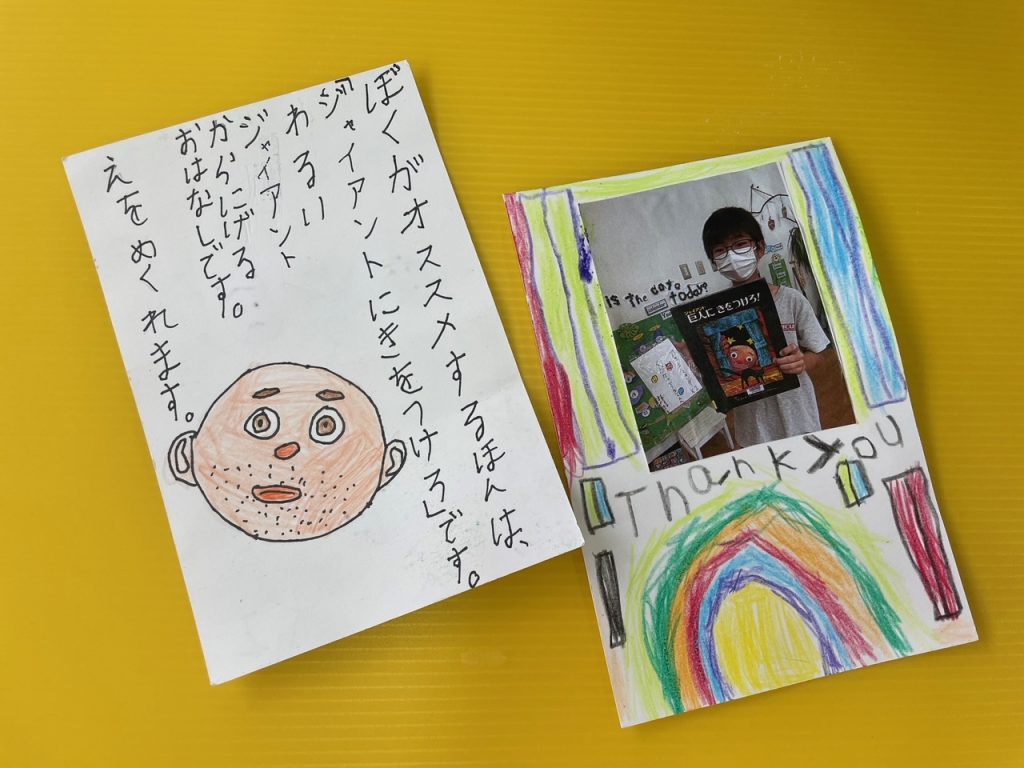 ぼくがオススメするほんは、
「ジャイアントにきをつけろ」です。
わるい
ジャイアント
からにげる
おはなしです。
えをめくれます。
is the date
today?
ジャイアント
巨人にきをつけろ!
Thank You